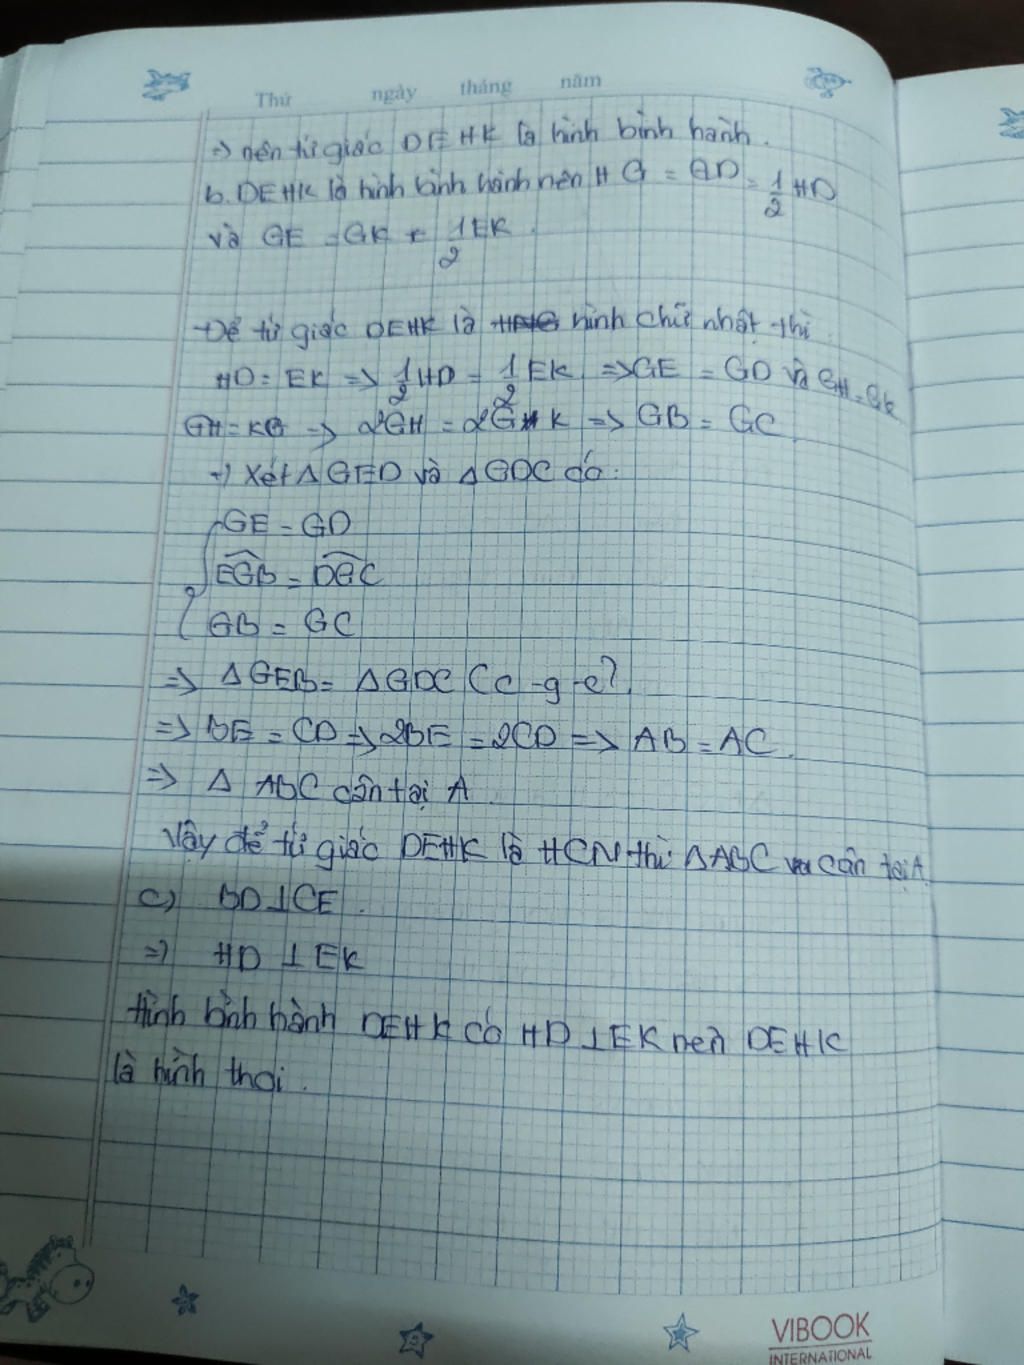 Thứ ngày tháng năm
=> nên tứ giác DEHK là hình bình hành.
b. DEHK là hình bình hành nên HG = GD = 1/2 HD
và GE = GK = 1/2 EK.
Để tứ giác DEHK là hình chữ nhật thì
HD = EK => 1/2 HD = 1/2 EK => GE = GD và GH = GK
GH = KG => 2GH = 2GK => GB = GC
=> Xét △GED và △GDC có:
GE = GD
EGB = DGC
GB = GC
=> △GEB = △GDC (c-g-c).
=> BE = CD => 2BE = 2CD => AB = AC.
=> △ ABC cân tại A
Vậy để tứ giác DEHK là HCN thì △ABC cân tại A.
c) BD⊥CE.
=> HD ⊥ EK
Hình bình hành DEHK có HD ⊥ EK nên DEHK
là hình thoi.
VIBOOK
INTERNATIONAL